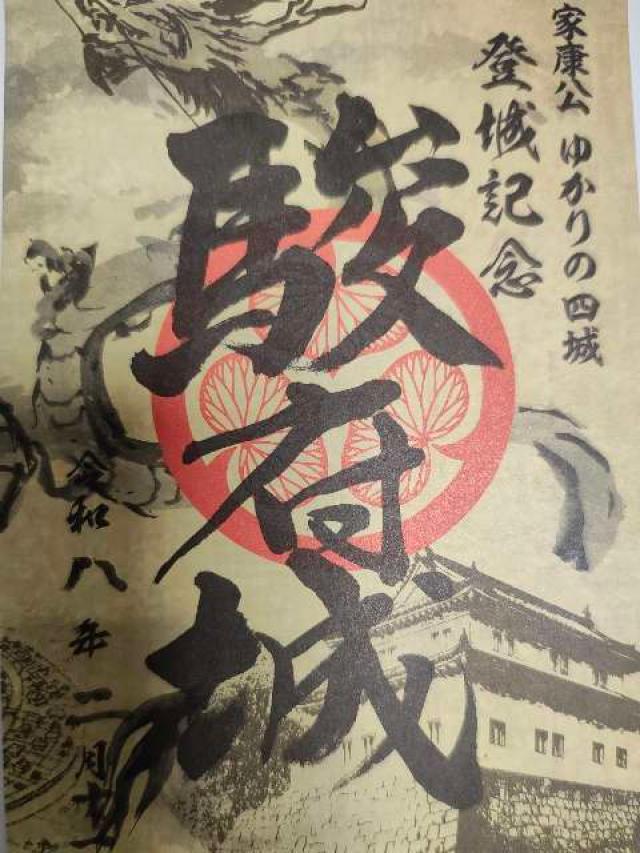 家康公ゆかりの四城
登城記念
駿府城
令和八年二月十一